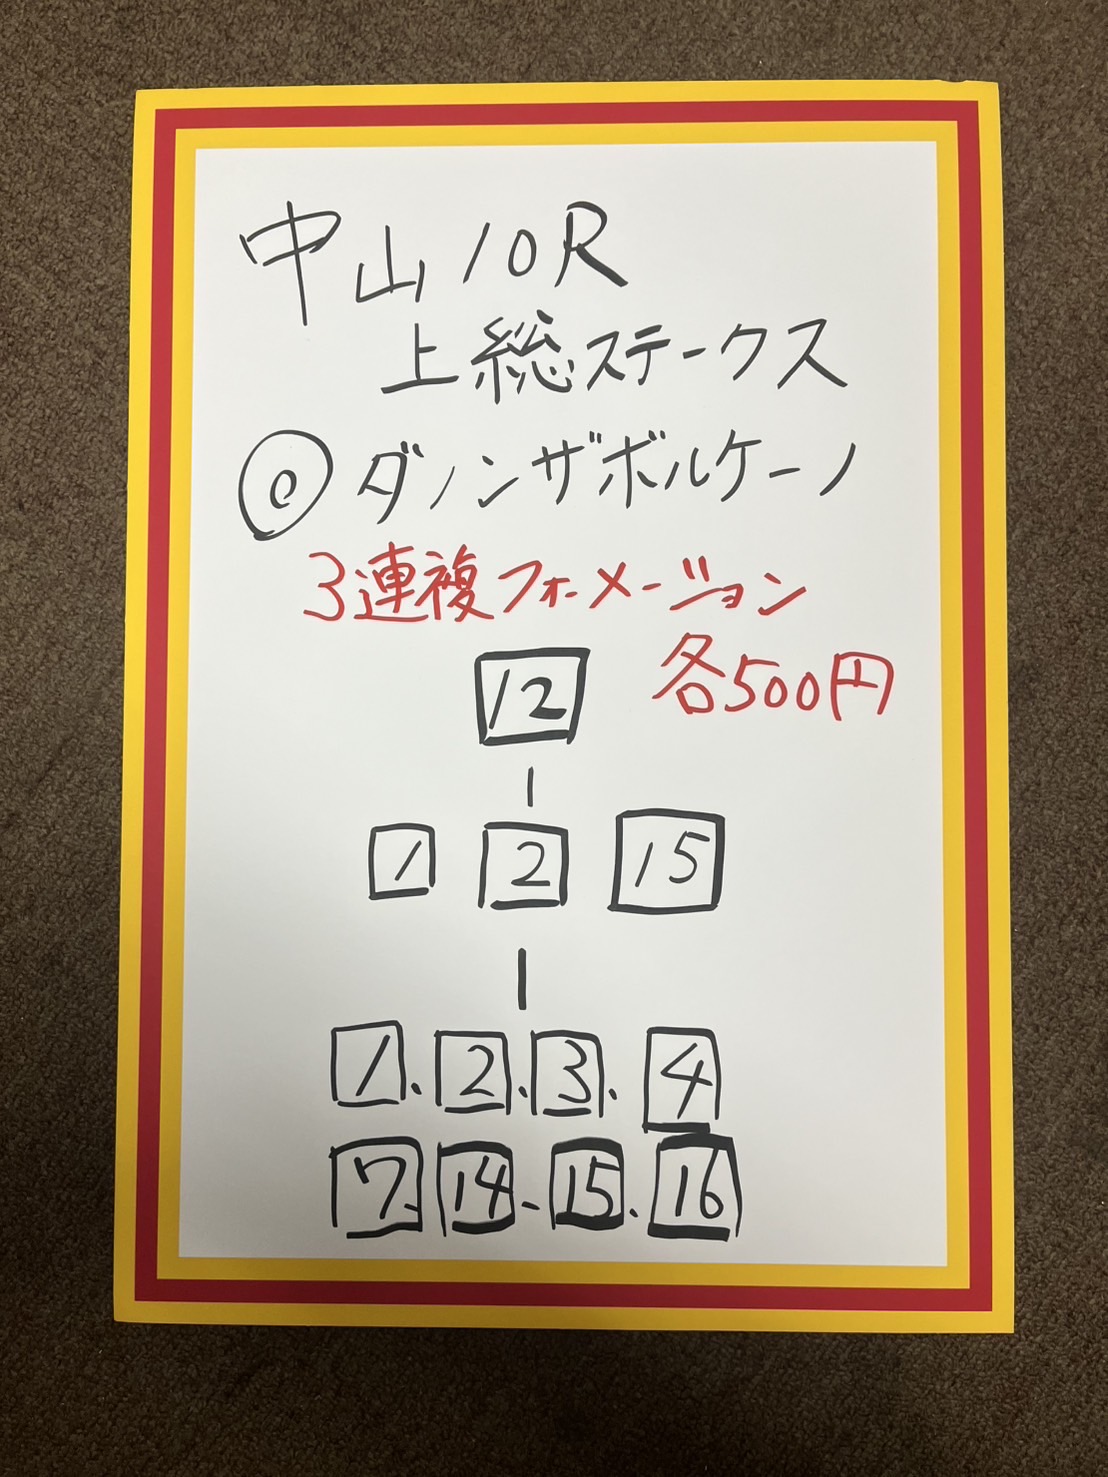 中山10R
上総ステークス
◎ダノンザボルケーノ
3連複フォーメーション
各500円
12
|
1 2 15
|
1.2.3.4
7.14-15.16